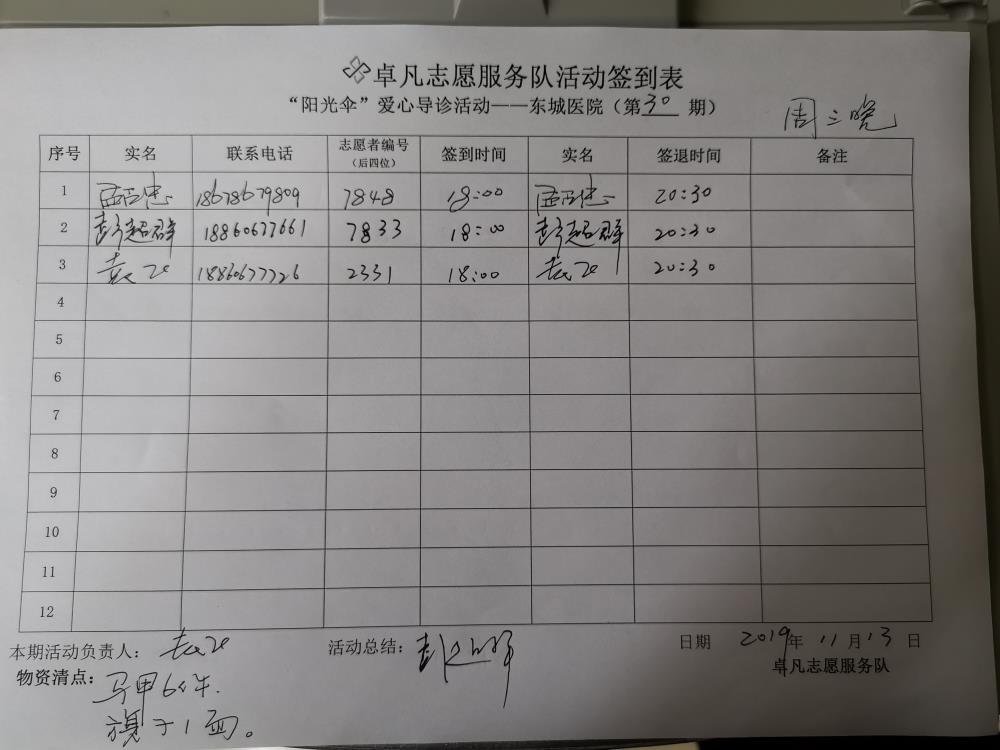 卓凡志愿服务队活动签到表
“阳光伞”爱心导诊活动——东城医院（第30期）
周三晚
序号 实名 联系电话 志愿者编号（后四位） 签到时间 实名 签退时间 备注
1 18678679809 7848 18:00 20:30
2 彭超群 18860677661 7833 18:00 彭超群 20:30
3 袁 18860677726 2331 18:00 袁 20:30
4
5
6
7
8
9
10
11
12
本期活动负责人： 袁 活动总结： 彭超群 日期 2019年 11月13日
物资清点： 马甲6件. 卓凡志愿服务队
旗子1面。